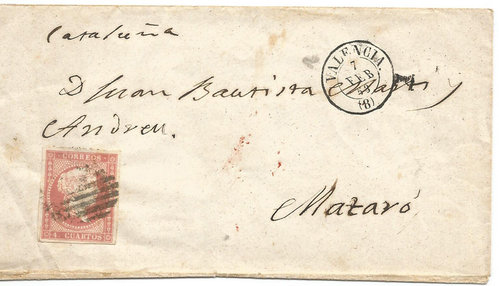 Cataluña
VALENCIA
7
FEB
(8)
D Juan Bautista Martí y
Andreu.
CORREOS
4 CUARTOS
Mataró